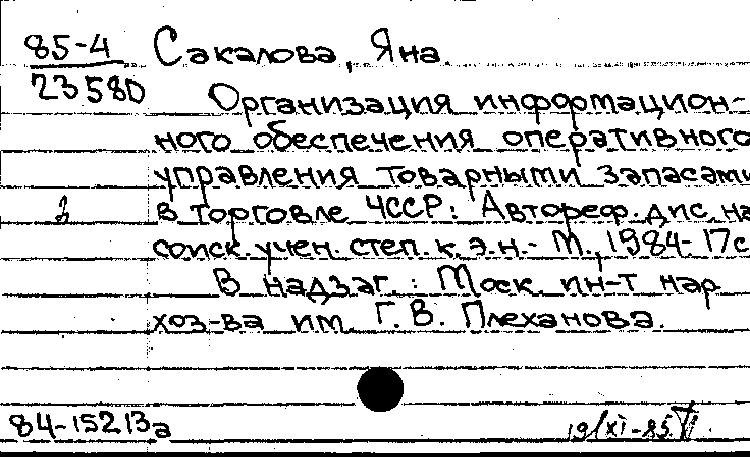 85-4 Сакалова, Яна
23580
Организация информацион-
ного обеспечения оперативного
управления товарными запасами
в торговле ЧССР: Автореф. дис. на
соиск. учен. степ. к.э.н.- М., 1984- 17с
В надзаг.: Моск. ин-т нар
хоз-ва им. Г. В. Плеханова.
84-15213а
19/XI-85